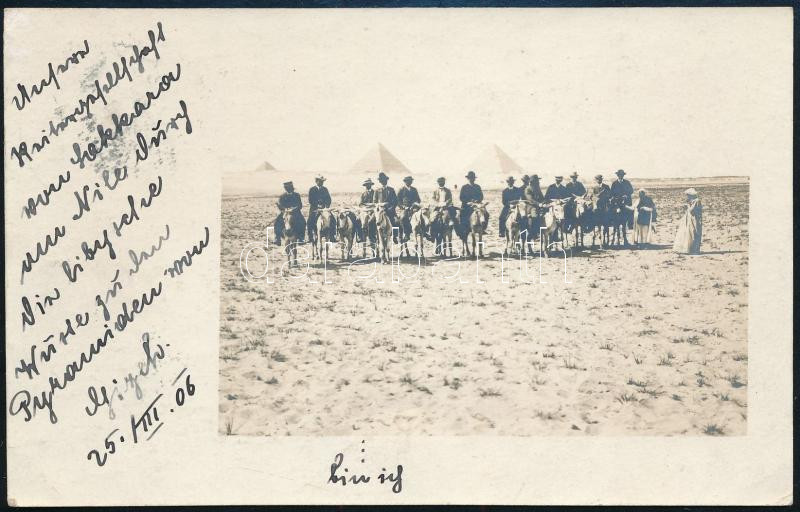 Unsere
Reitergesellschaft
von Sakkara
am Nil durch
die libysche
Wüste zu den
Pyramiden von
Gizeh.
25./III.06
darabanth
bin ich